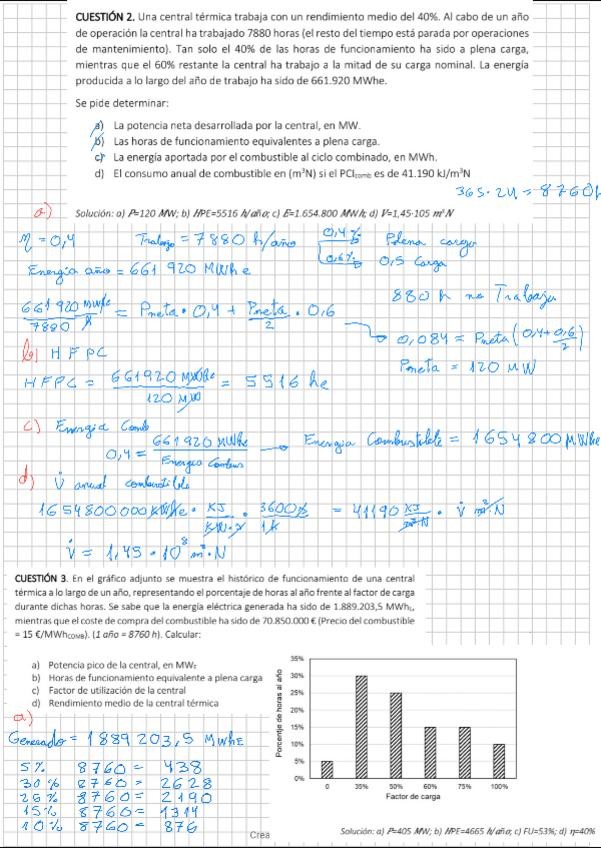 CUESTIÓN 2. Una central térmica trabaja con un rendimiento medio del 40%. Al cabo de un año
de operación la central ha trabajado 7880 horas (el resto del tiempo está parada por operaciones
de mantenimiento). Tan solo el 40% de las horas de funcionamiento ha sido a plena carga,
mientras que el 60% restante la central ha trabajo a la mitad de su carga nominal. La energía
producida a lo largo del año de trabajo ha sido de 661.920 MWhe.
Se pide determinar:
a) La potencia neta desarrollada por la central, en MW.
b) Las horas de funcionamiento equivalentes a plena carga.
c) La energía aportada por el combustible al ciclo combinado, en MWh.
d) El consumo anual de combustible en (m³N) si el PCIcomb es de 41.190 kJ/m³N
365·24 = 8760h
a) Solución: a) P=120 MW; b) HPE=5516 h/año; c) E=1.654.800 MWh; d) V=1,45·105 m³N
η = 0,4 Trabajo = 7880 h/año 0,4% Plena carga
0,6% 0,5 Carga
Energia año = 661 920 MWhe
880 h no Trabaja
661 920 MWhe / 7880 h = Pneta · 0,4 + Pneta/2 · 0,6
0,084 = Pneta (0,4 + 0,6/2)
Pneta = 120 MW
b) H F P C
H F P C = 661920 MWhe / 120 MW = 5516 he
c) Energia Comb
0,4 = 661920 MWhe / Energia Combus → Energia Combustible = 1654800 MWhe
d) V̇ anual combustible
1654800000 KWhe · KJ/KW·s · 3600s/1h = 41190 KJ/m³N · V̇ m³·N
V̇ = 1,45 · 10⁸ m³·N
CUESTIÓN 3. En el gráfico adjunto se muestra el histórico de funcionamiento de una central
térmica a lo largo de un año, representando el porcentaje de horas al año frente al factor de carga
durante dichas horas. Se sabe que la energía eléctrica generada ha sido de 1.889.203,5 MWhE,
mientras que el coste de compra del combustible ha sido de 70.850.000 € (Precio del combustible
= 15 €/MWhCOMB). (1 año = 8760 h). Calcular:
a) Potencia pico de la central, en MWE
b) Horas de funcionamiento equivalente a plena carga
c) Factor de utilización de la central
d) Rendimiento medio de la central térmica
a)
Generado = 1889 203,5 MWhE
5% 8760 = 438
30% 8760 = 2628
25% 8760 = 2190
15% 8760 = 1314
10% 8760 = 876
Porcentje de horas al año
35%
30%
25%
20%
15%
10%
5%
0%
0 35% 50% 60% 75% 100%
Factor de carga
Crea
Solución: a) P=405 MW; b) HPE=4665 h/año; c) FU=53%; d) η=40%